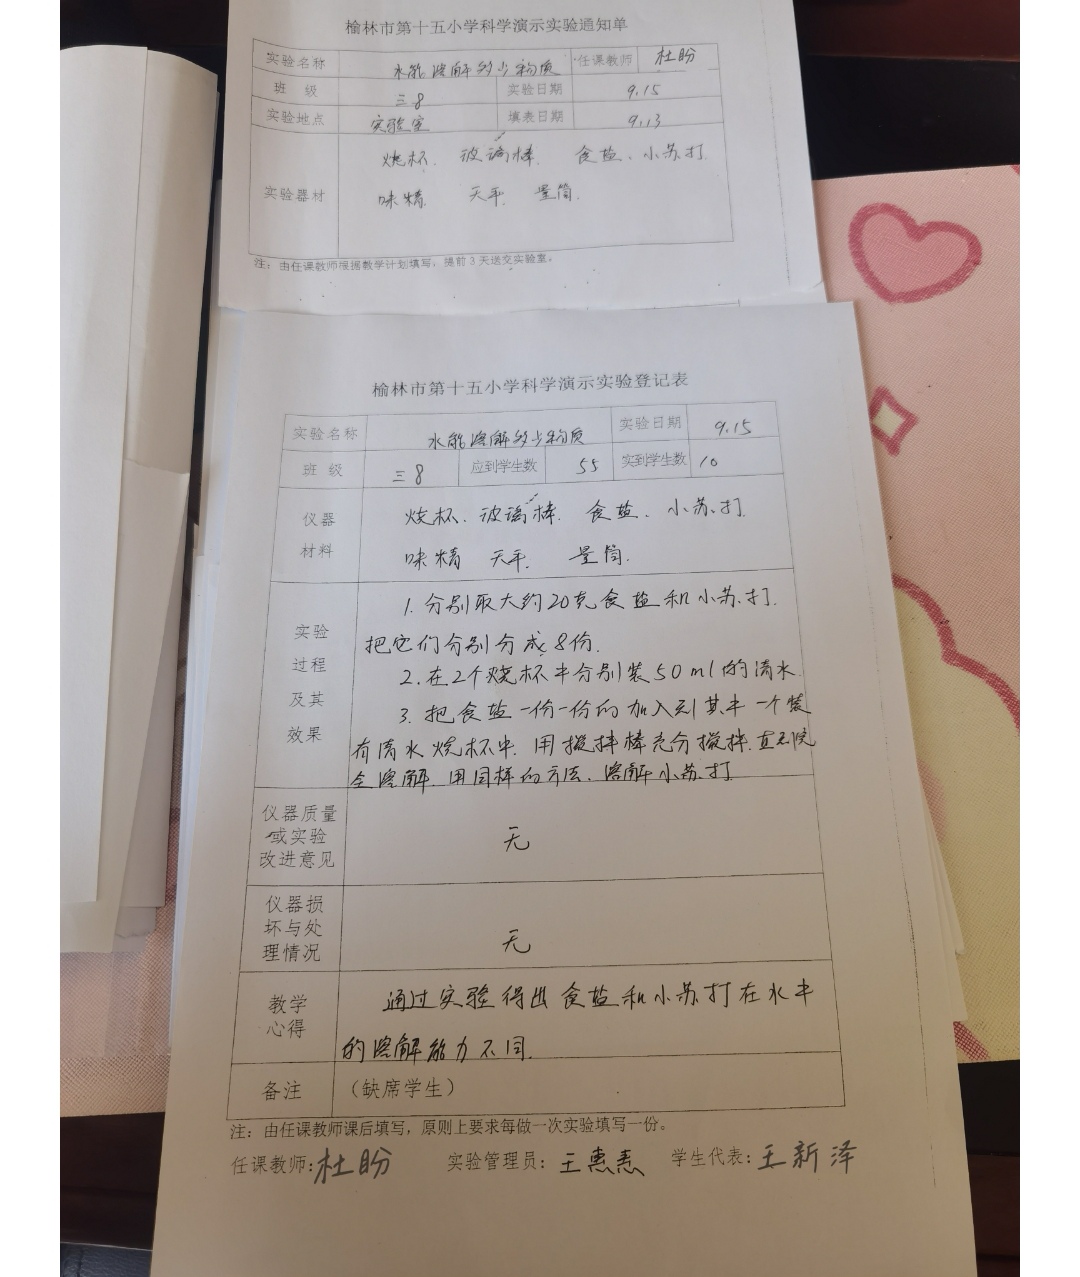 榆林市第十五小学科学演示实验通知单
实验名称 水能溶解多少物质 任课教师 杜盼
班 级 三8 实验日期 9.15
实验地点 实验室 填表日期 9.13
烧杯. 玻璃棒. 食盐、小苏打.
实验器材 味精. 天平. 量筒.
注：由任课教师根据教学计划填写，提前3天送交实验室。
榆林市第十五小学科学演示实验登记表
实验名称 水能溶解多少物质 实验日期 9.15
班 级 三8 应到学生数 55 实到学生数 10
仪器 烧杯. 玻璃棒. 食盐. 小苏打.
材料 味精 天平. 量筒.
1. 分别取大约20克食盐和小苏打.
实验 把它们分别分成8份.
过程 2. 在2个烧杯中分别装50ml的清水.
及其 3. 把食盐一份一份的加入到其中一个装
效果 有清水烧杯中. 用搅拌棒充分搅拌. 直至完
全溶解. 用同样的方法. 溶解小苏打
仪器质量
或实验 无
改进意见
仪器损
坏与处 无
理情况
教学 通过实验得出食盐和小苏打在水中
心得 的溶解能力不同.
备注 （缺席学生）
注：由任课教师课后填写，原则上要求每做一次实验填写一份。
任课教师: 杜盼 实验管理员: 王惠 学生代表: 王新泽